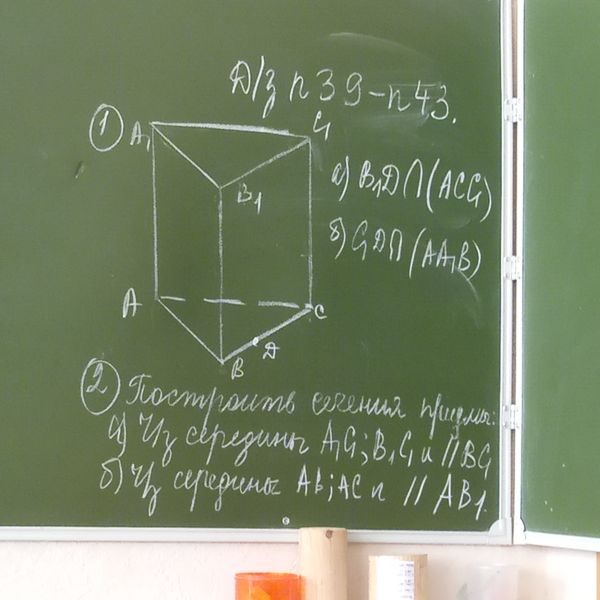 Д/з п 39-п 43.
①
A₁
C₁
B₁
а) B₁D∩(ACC₁)
б) C₁D∩(AA₁B)
A
C
D
B
② Построить сечения призмы:
а) Чз середины A₁C₁; B₁C₁ и // BC₁
б) Чз середины AB; AC и // AB₁.